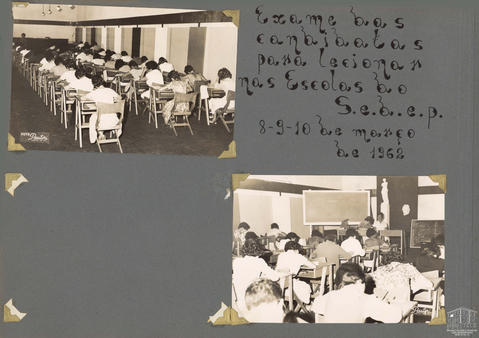 Exame das
candidatas
para lecionar
nas Escolas do
S.e.b.e.p.
8-9-10 de março
de 1962
FOTO